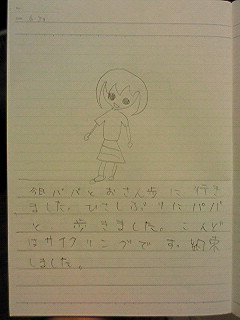 今日パパとおさんぽに行き
ました。ひさしぶりにパパ
と、歩きました。こんど
はサイクリングです。約束
しました。